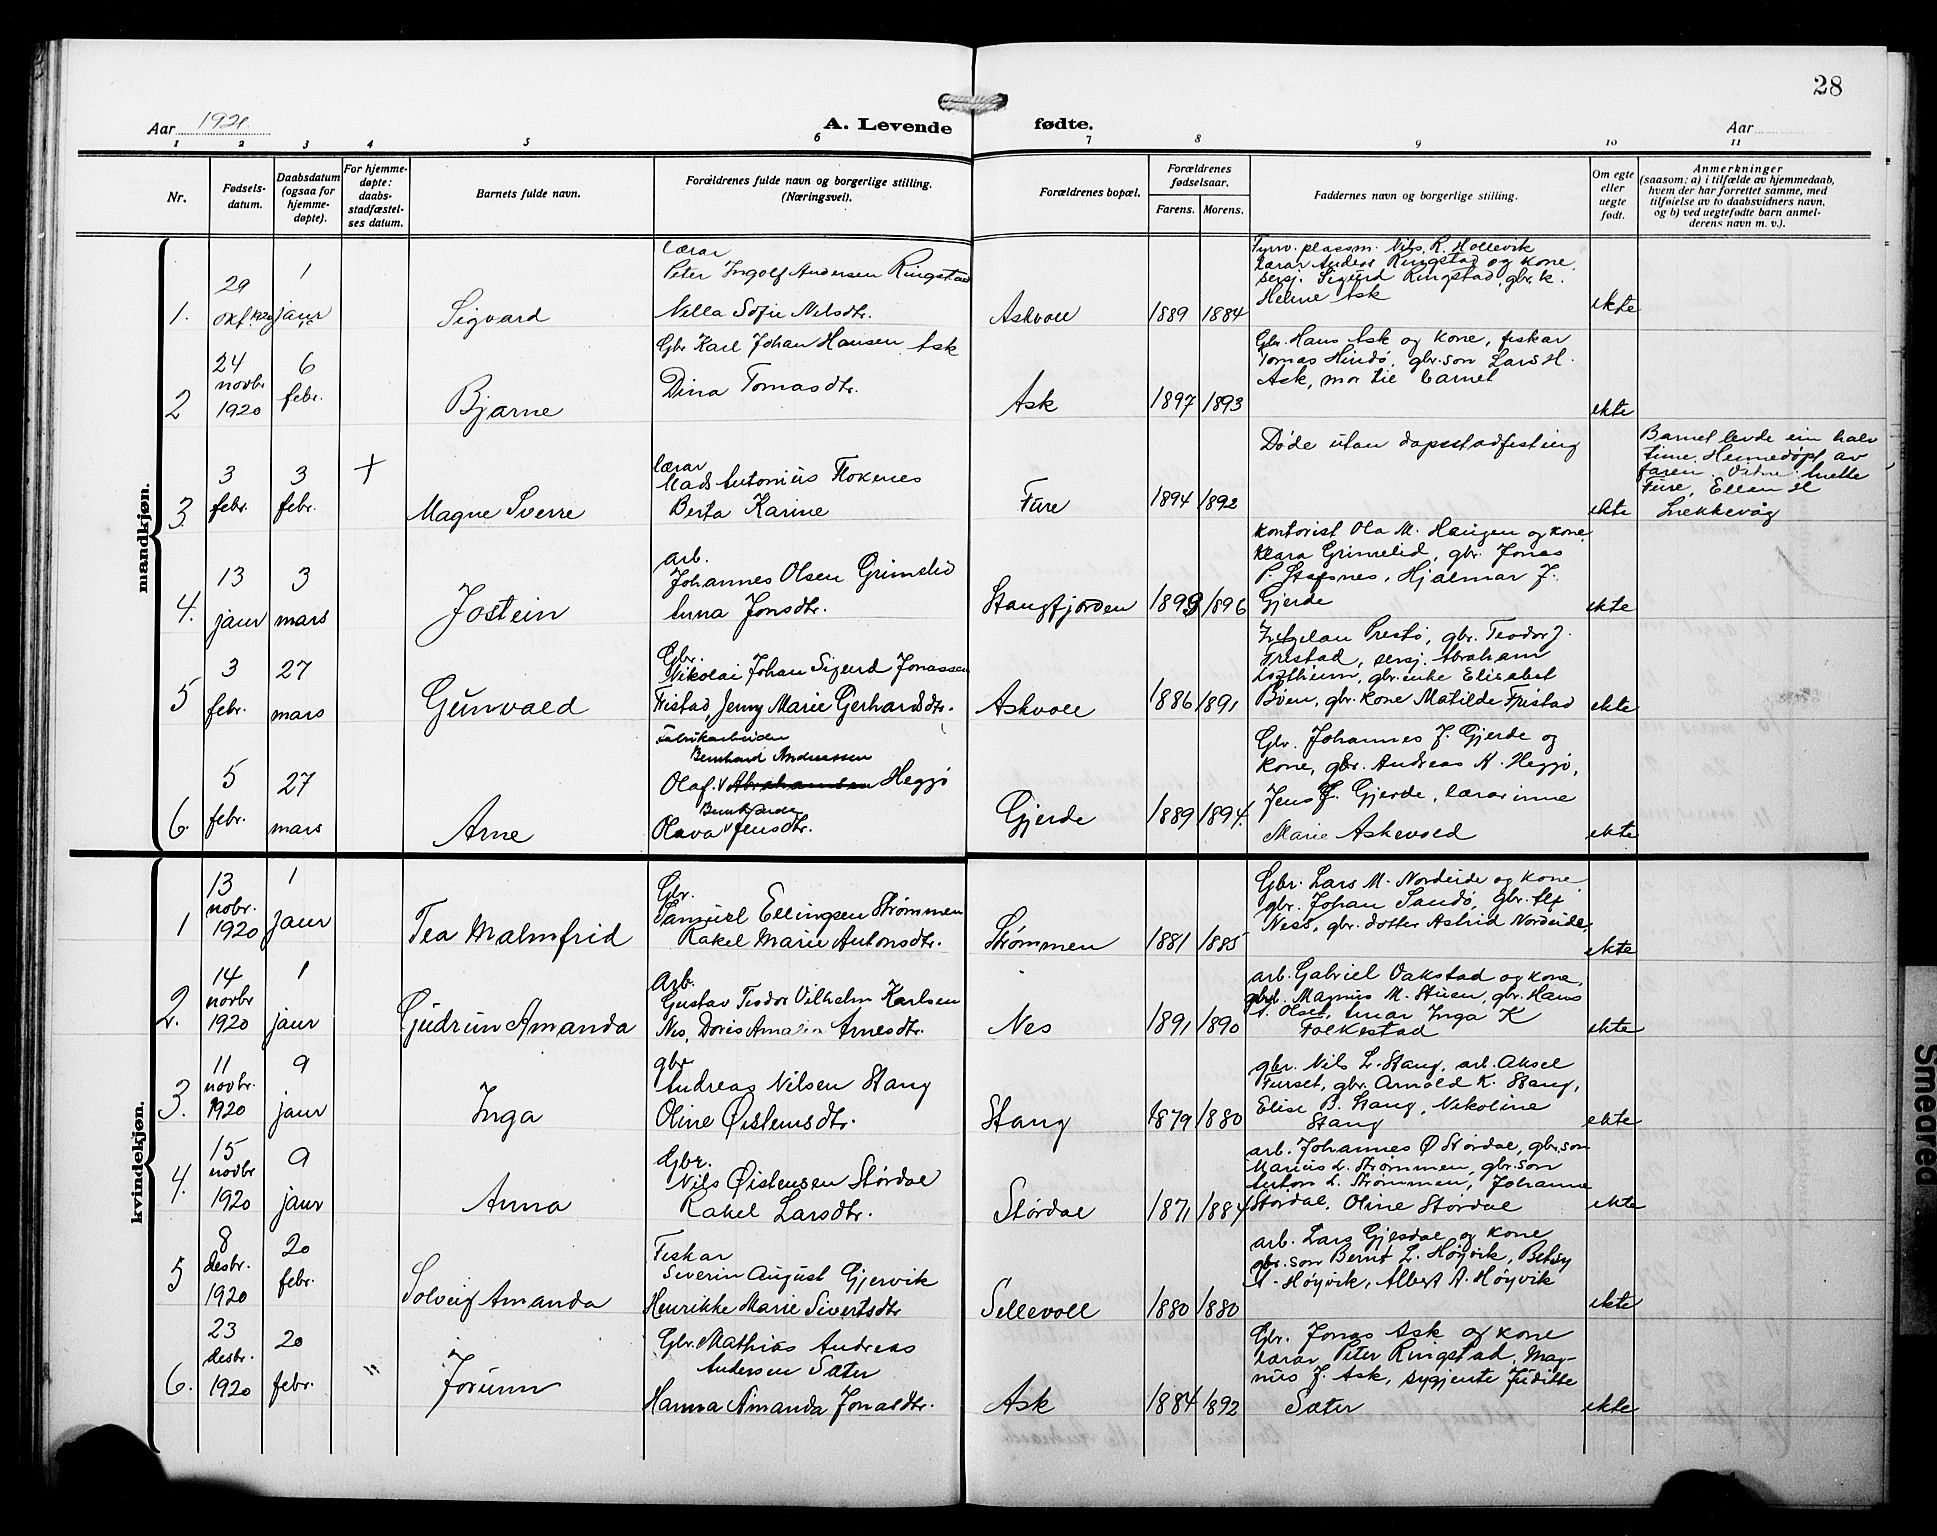 28
Aar 1921
A. Levende fødte.
Aar
1 2 3 4 5 6 7 8 9 10 11
Nr.
Fødsels-
datum.
Daabsdatum
(ogsaa for
hjemme-
døpte).
For hjemme-
døpte:
daabs-
stadfæstel-
ses datum.
Barnets fulde navn.
Forældrenes fulde navn og borgerlige stilling.
(Næringsvei).
Forældrenes bopæl.
Forældrenes
fødselsaar.
Farens. Morens.
Faddernes navn og borgerlige stilling.
Om egte
eller
uegte
født.
Anmerkninger
(saasom: a) i tilfælde av hjemmedaab,
hvem der har forrettet samme, med
tilføielse av to daabsvidners navn,
og b) ved uegtefødte barn anmel-
derens navn m. v.).
mandkjøn.
1.
29
okt. 1920
1
jaur
Sigvard
lærar
Peter Ingolf Andersen Ringstad
Nella Sofie Nilsdtr.
Askvoll
1889 1884
Nils R. Hollevik
lærar Andreas Ringstad og kone,
sersj. Sigurd Ringstad, gbr.k.
Heline Ask
ekte
2
24
novbr
1920
6
febr.
Bjarne
Gbr Karl Johan Hansen Ask
Dina Tomasdtr.
Ask
1897 1893
Gbr. Hans Ask og kone, fiskar
Tomas Hindø, gbr.son Lars H.
Ask, mor til barnet
ekte
3.
3
febr.
3
febr.
+
Magne Sverre
lærar
Mads Antonius Flokenes
Berta Karine
Fure
1894 1892
Døde utan dapsstadfesting
ekte
Barnet levde ein halv
time. Heimedøpt av
faren.
Fure, Ellen H
4.
13
jaur
3
mars
Jostein
arb.
Johannes Olsen Grimelid
Anna Jonsdtr.
Stangfjorden
1899 1896
Kontorist Ola M. Haugen og kone,
Klara Grimelid, gbr. Jonas
P. Stafsnes, Hjalmar J.
Gjerde
ekte
5
3
febr.
27
mars
Gunvald
Gbr.
Nikolai Johan Sigurd Jonassen
Fristad, Jenny Marie Gerhardsdtr.
Askvoll
1886 1891
Prestø, gbr. Teodor J.
Fristad, sersj. Abraham
gbr. enke Elisabet
Bøen, gbr. kone Matilde Fristad
ekte
6.
5
febr.
27
mars
Arne
Fabrikarbeider
Bernhard Andreassen
Olaf. v Abrahamsen Heggjø
Olava v Jensdtr.
Gjerde
1889 1894.
Gbr. Johannes J. Gjerde og
kone, gbr. Andreas A. Heggjø,
Jens J. Gjerde, lærarinne
Marie Askevold
ekte
kvindekjøn.
1
13
nobr.
1920
1
jaur
Tea Malmfrid
Gbr.
Samuel Ellingsen Strømmen
Rakel Marie Antonsdtr.
Strømmen
1881 1885
Gbr. Lars M. Nordeide og kone,
gbr. Johan Sandø, gbr. Alf
Ness, gbr. dotter Astrid Nordeide,
ekte
2.
14
novbr
1920
1
jaur
Gudrun Amanda
Arb.
Gustav Teodor Vilhelm Karlsen
Nes, Doris Amalia Arnesdtr.
Nes
1891 1890
arb. Gabriel Vakstad og kone,
gbr. Magnus M. Stuen, gbr. Hans
A. Olset, Inga K
Folkestad
ekte
3.
11
novbr.
1920
9
jaur
Inga
gbr
Andreas Nilsen Stang
Oline Øistensdtr.
Stang
1879 1880
gbr. Nils L. Stang, arb. Aksel
Furset, gbr. Arnold K. Stang,
Elise B. Stang, Nikoline
Stang
ekte
4.
15
novbr
1920
9
jaur
Anna
Gbr.
Nils Øistensen Størdal
Rakel Larsdtr.
Størdal
1871 1884
arb. Johannes Ø Størdal, gbr.son
Marius L. Strømmen, gbr.son
Anton L. Strømmen, Johanne
Stordal, Oline Størdal
ekte
5
8
desbr.
1920
20
febr.
Solveig Amanda
Fiskar
Severin August Gjervik
Henrikke Marie Sivertsdtr
Sellevoll
1880 1880
arb. Lars Gjesdal og kone
gbr. son Bernt L. Høyvik, Betsy
A. Høyvik, Albert A. Høyvik
ekte
6.
23
desbr.
1920
20
febr.
"
Jorunn
Gbr. Mathias Andreas
Andersen Sæter
Hanna Amanda Jonasdtr.
Ask
1884 1892
Gbr. Jonas Ask og kone
lærar Peter Ringstad, Mag-
nus J. Ask, sygjente Juditte
Sæter
ekte
Smeared